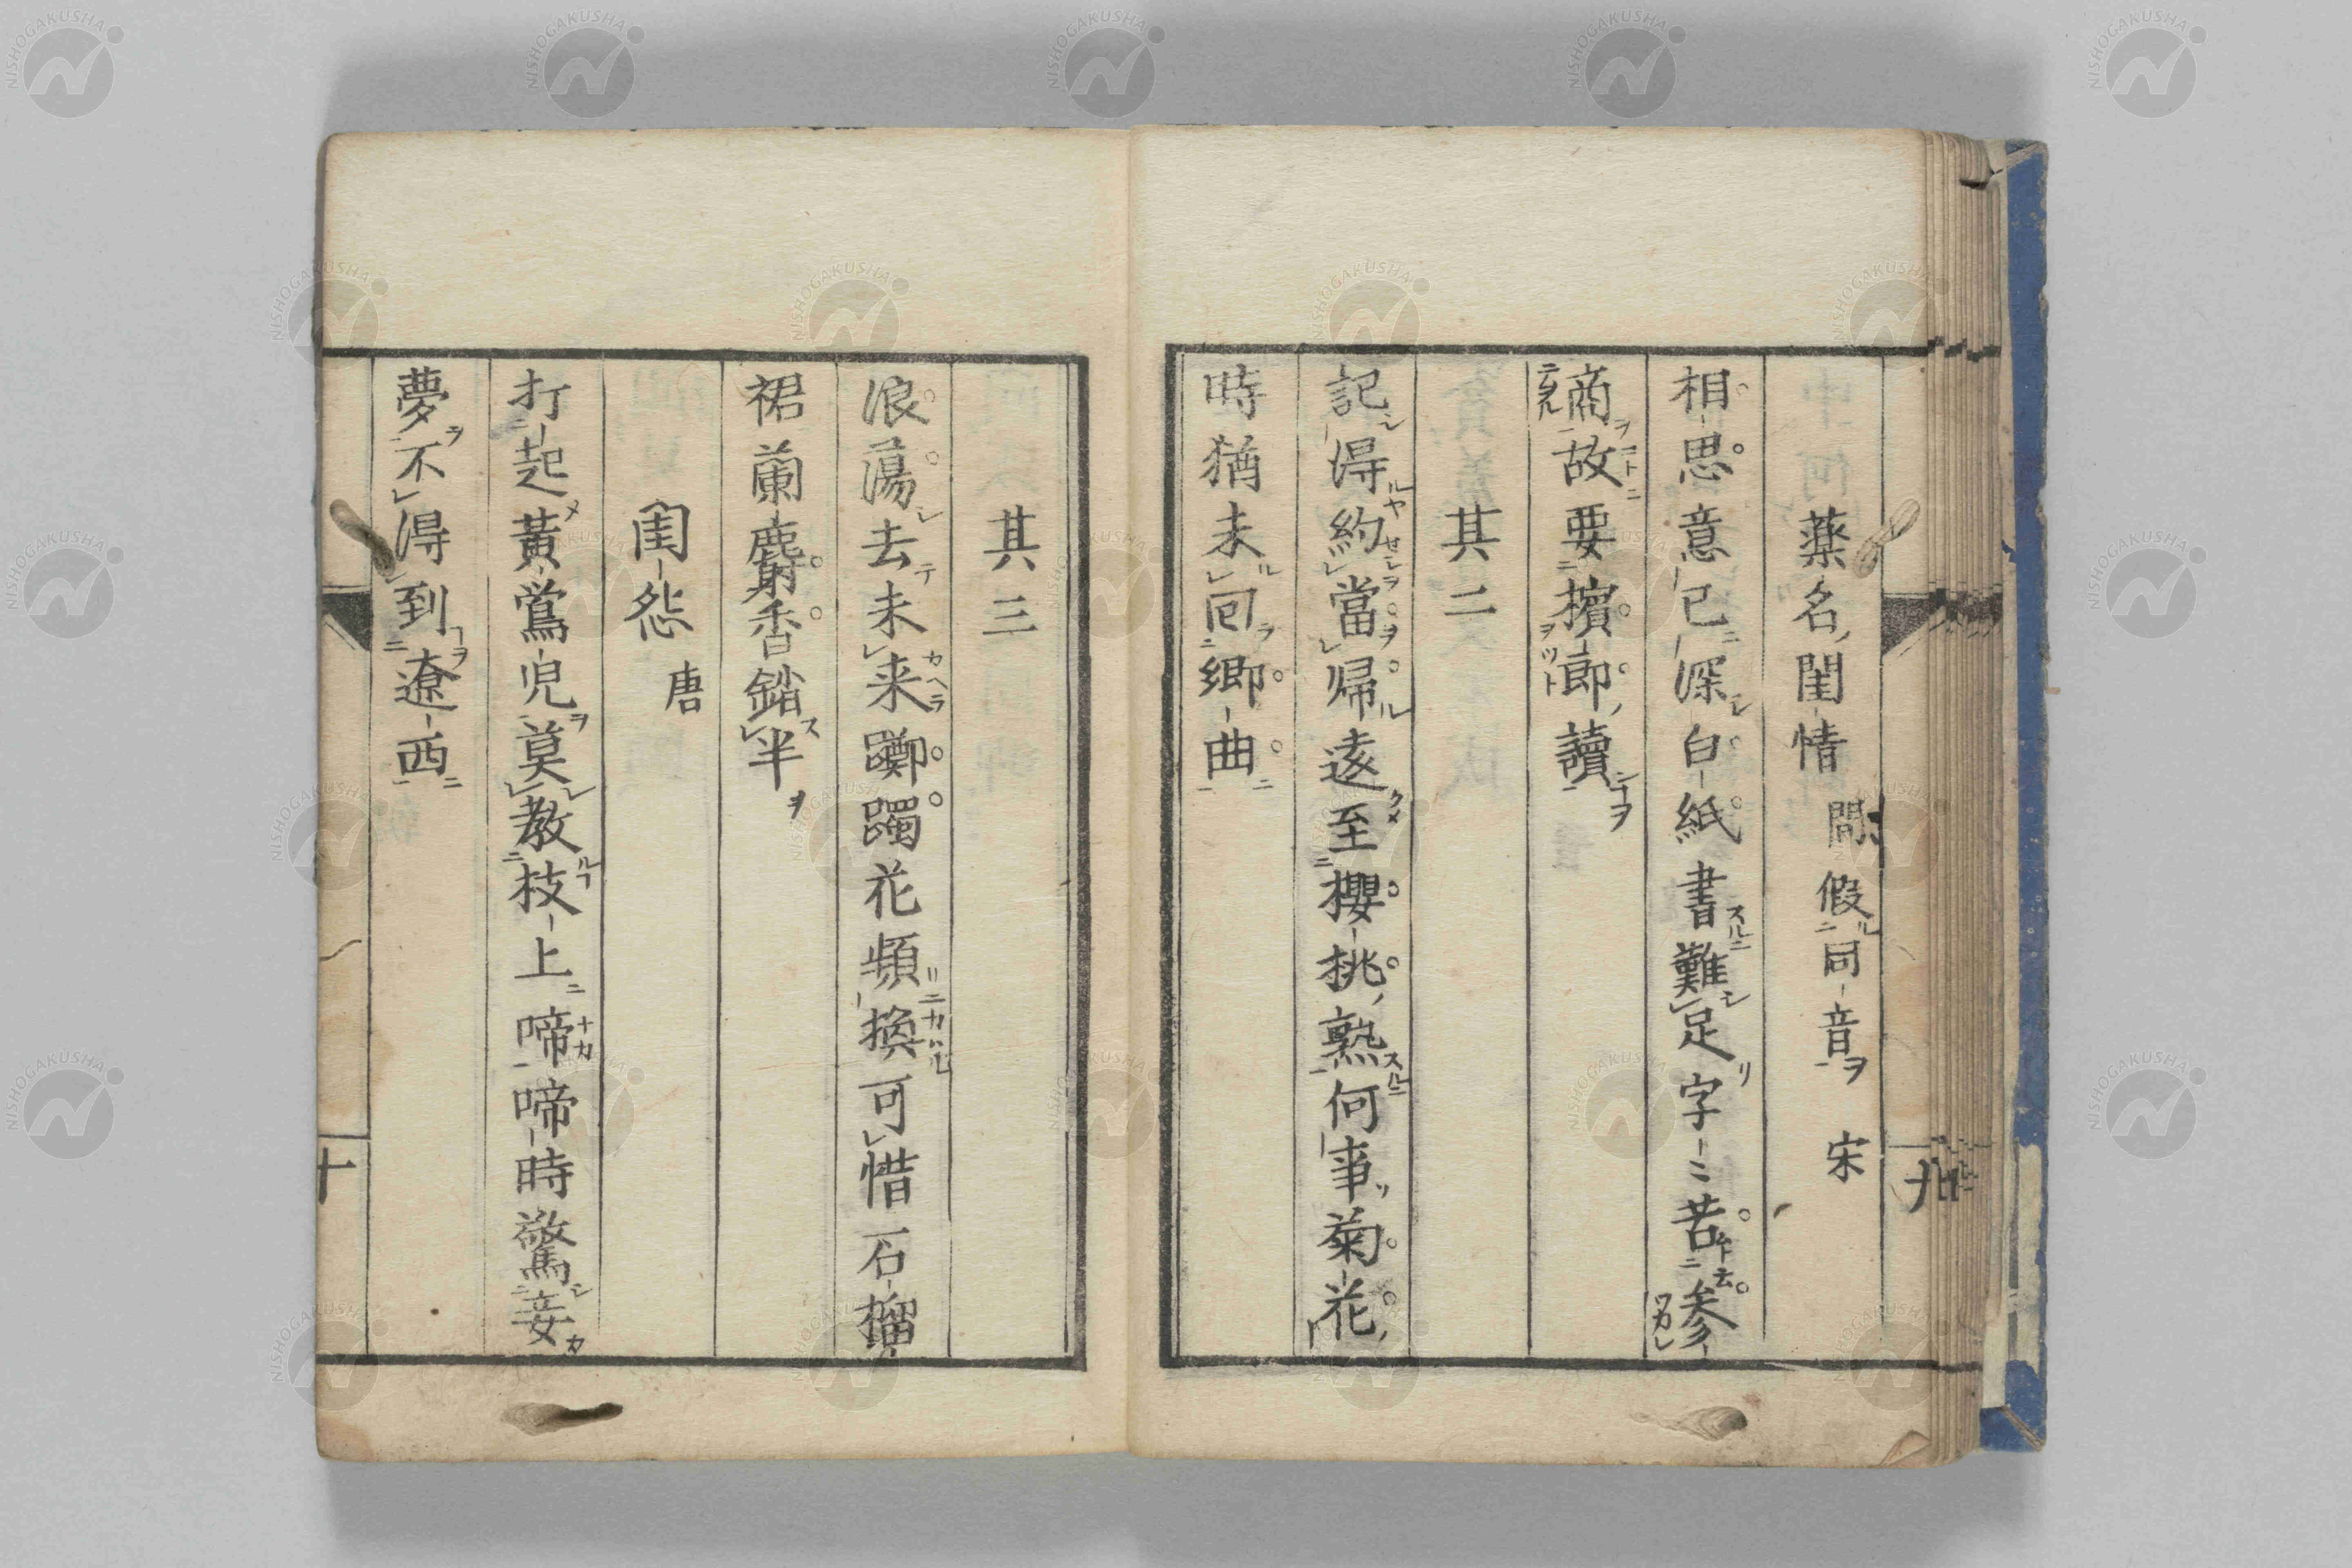 薬名閨情 間假同音 宋
相思意已深白紙書難足字〻苦参
商故要檳郎讀
其二
記得約當帰遠至櫻桃熟何事菊花
時猶未回郷曲
其三
浪蕩去未来躑躅花頻換可惜石榴
裙蘭麝香銷半
閨怨 唐
打起黄鶯児莫教枝上啼啼時驚妾
夢不得到遼西
十
NISHOGAKUSHA